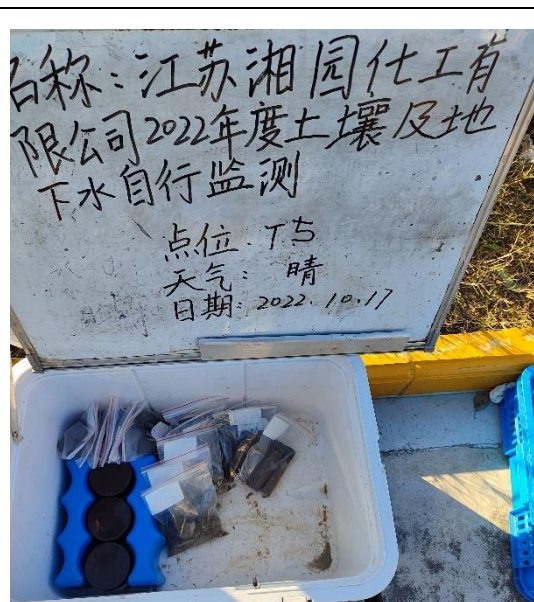 名称:江苏湘园化工有
限公司2022年度土壤及地
下水自行监测
点位:T5
天气:晴
日期:2022.10.17